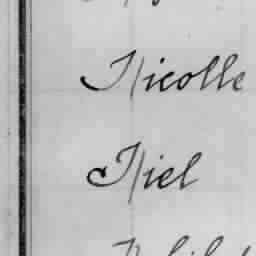 Nicolle
Niel